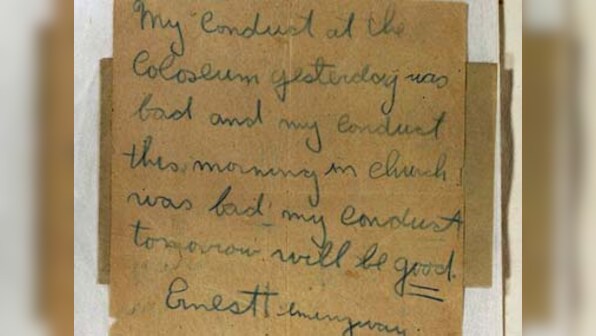 My Conduct at the
Coloseum yesterday was
bad and my conduct
this morning in church
was bad my conduct
tomorrow will be good.
Ernest Hemingway.